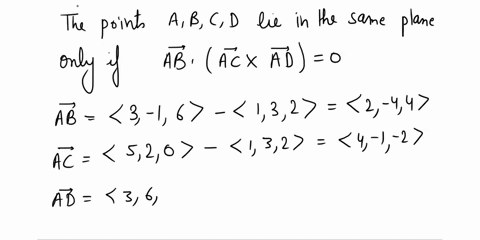 The points A, B, C, D lie in the same plane
only if $\overrightarrow{AB} \cdot (\overrightarrow{AC} \times \overrightarrow{AD}) = 0$
$\overrightarrow{AB} = \langle 3, -1, 6 \rangle - \langle 1, 3, 2 \rangle = \langle 2, -4, 4 \rangle$
$\overrightarrow{AC} = \langle 5, 2, 0 \rangle - \langle 1, 3, 2 \rangle = \langle 4, -1, -2 \rangle$
$\overrightarrow{AD} = \langle 3, 6,$